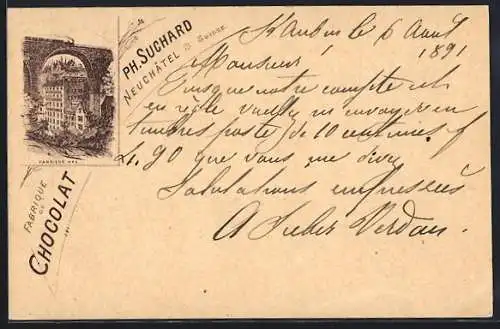 PH. SUCHARD
NEUCHÂTEL
SUISSE
FABRIQUE
DE
CHOCOLAT
St Aubin le 6 Avril
1891
Monsieur!
Puisque notre compte est
en règle veuillez m'envoyer en
timbres poste de 10 centimes f
4.90 que vous me devez
Salutations empressées
A Verdan.